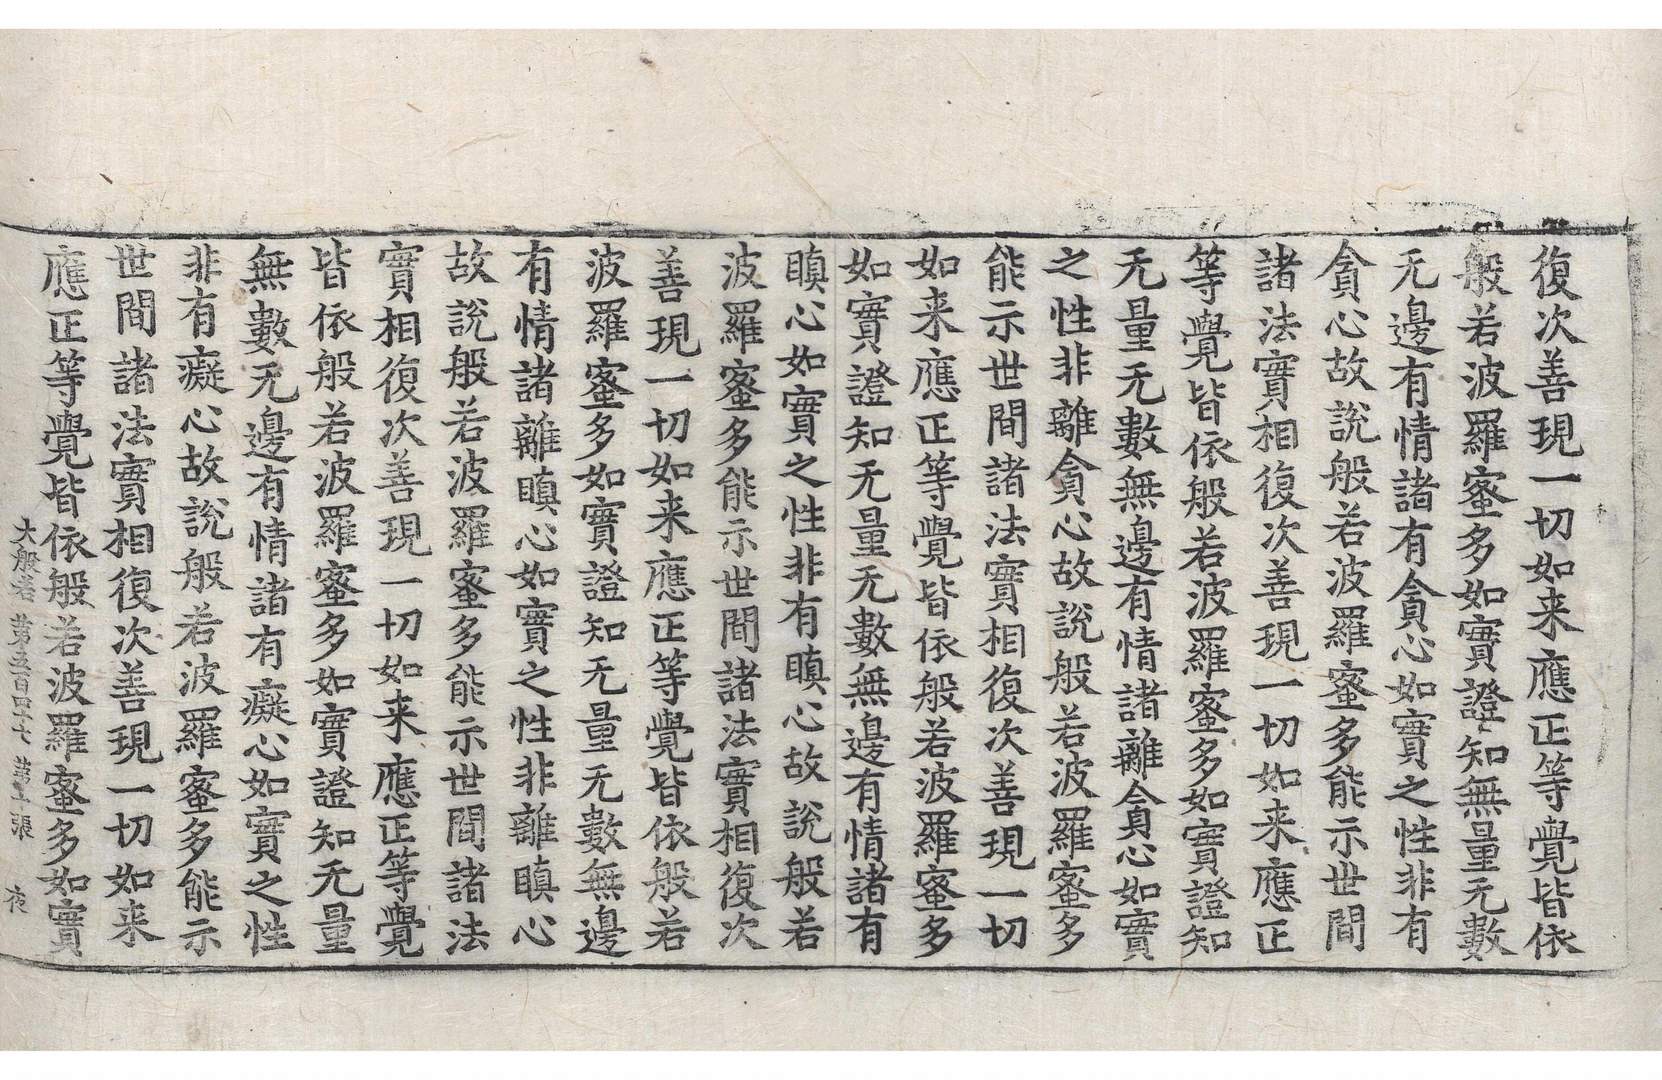 復次善現一切如来應正等覺皆依
般若波羅蜜多如實證知無量无數
无邊有情諸有貪心如實之性非有
貪心故說般若波羅蜜多能示世間
諸法實相復次善現一切如来應正
等覺皆依般若波羅蜜多如實證知
无量无數無邊有情諸離貪心如實
之性非離貪心故說般若波羅蜜多
能示世間諸法實相復次善現一切
如来應正等覺皆依般若波羅蜜多
如實證知无量无數無邊有情諸有
瞋心如實之性非有瞋心故說般若
波羅蜜多能示世間諸法實相復次
善現一切如来應正等覺皆依般若
波羅蜜多如實證知无量无數無邊
有情諸離瞋心如實之性非離瞋心
故說般若波羅蜜多能示世間諸法
實相復次善現一切如来應正等覺
皆依般若波羅蜜多如實證知无量
無數无邊有情諸有癡心如實之性
非有癡心故說般若波羅蜜多能示
世間諸法實相復次善現一切如来
應正等覺皆依般若波羅蜜多如實
大般若 第五百四十七 第 張 夜